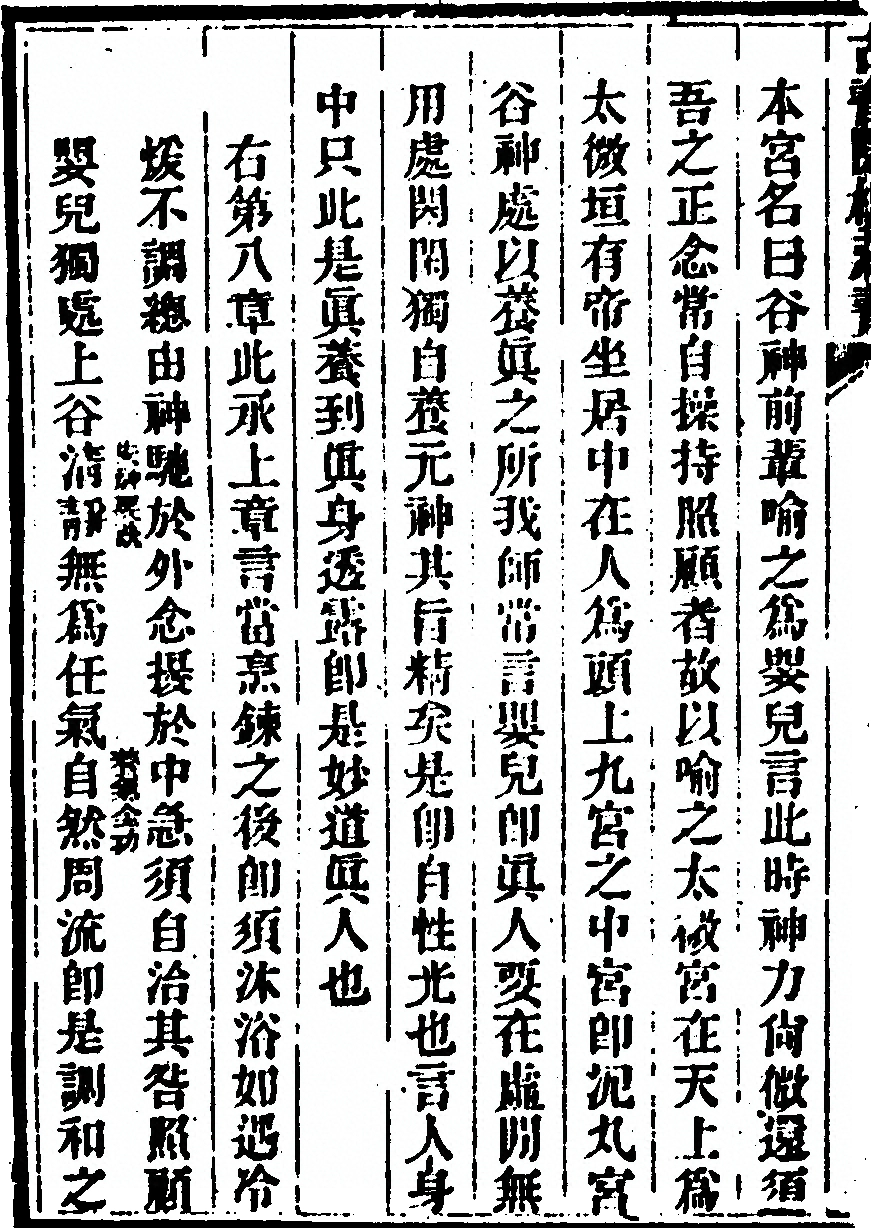 本宮名曰谷神前輩喻之爲嬰兒言此時神力尙微還須
吾之正念常自操持照顧者故以喻之太微宮在天上爲
太微垣有帝坐居中在人爲頭上九宮之中宮卽泥丸宮
谷神處以養眞之所我師常言嬰兒卽眞人要在虛閒無
用處閱閱獨自養元神其旨精矣是卽自性光也言人身
中只此是眞養到眞身透露卽是妙道眞人也
右第八章此承上章言當烹鍊之後卽須沐浴如遇冷
煖不調總由神馳於外念擾於中急須自治其咎照顧
嬰兒獨處上谷淸靜無爲任氣自然周流卽是調和之